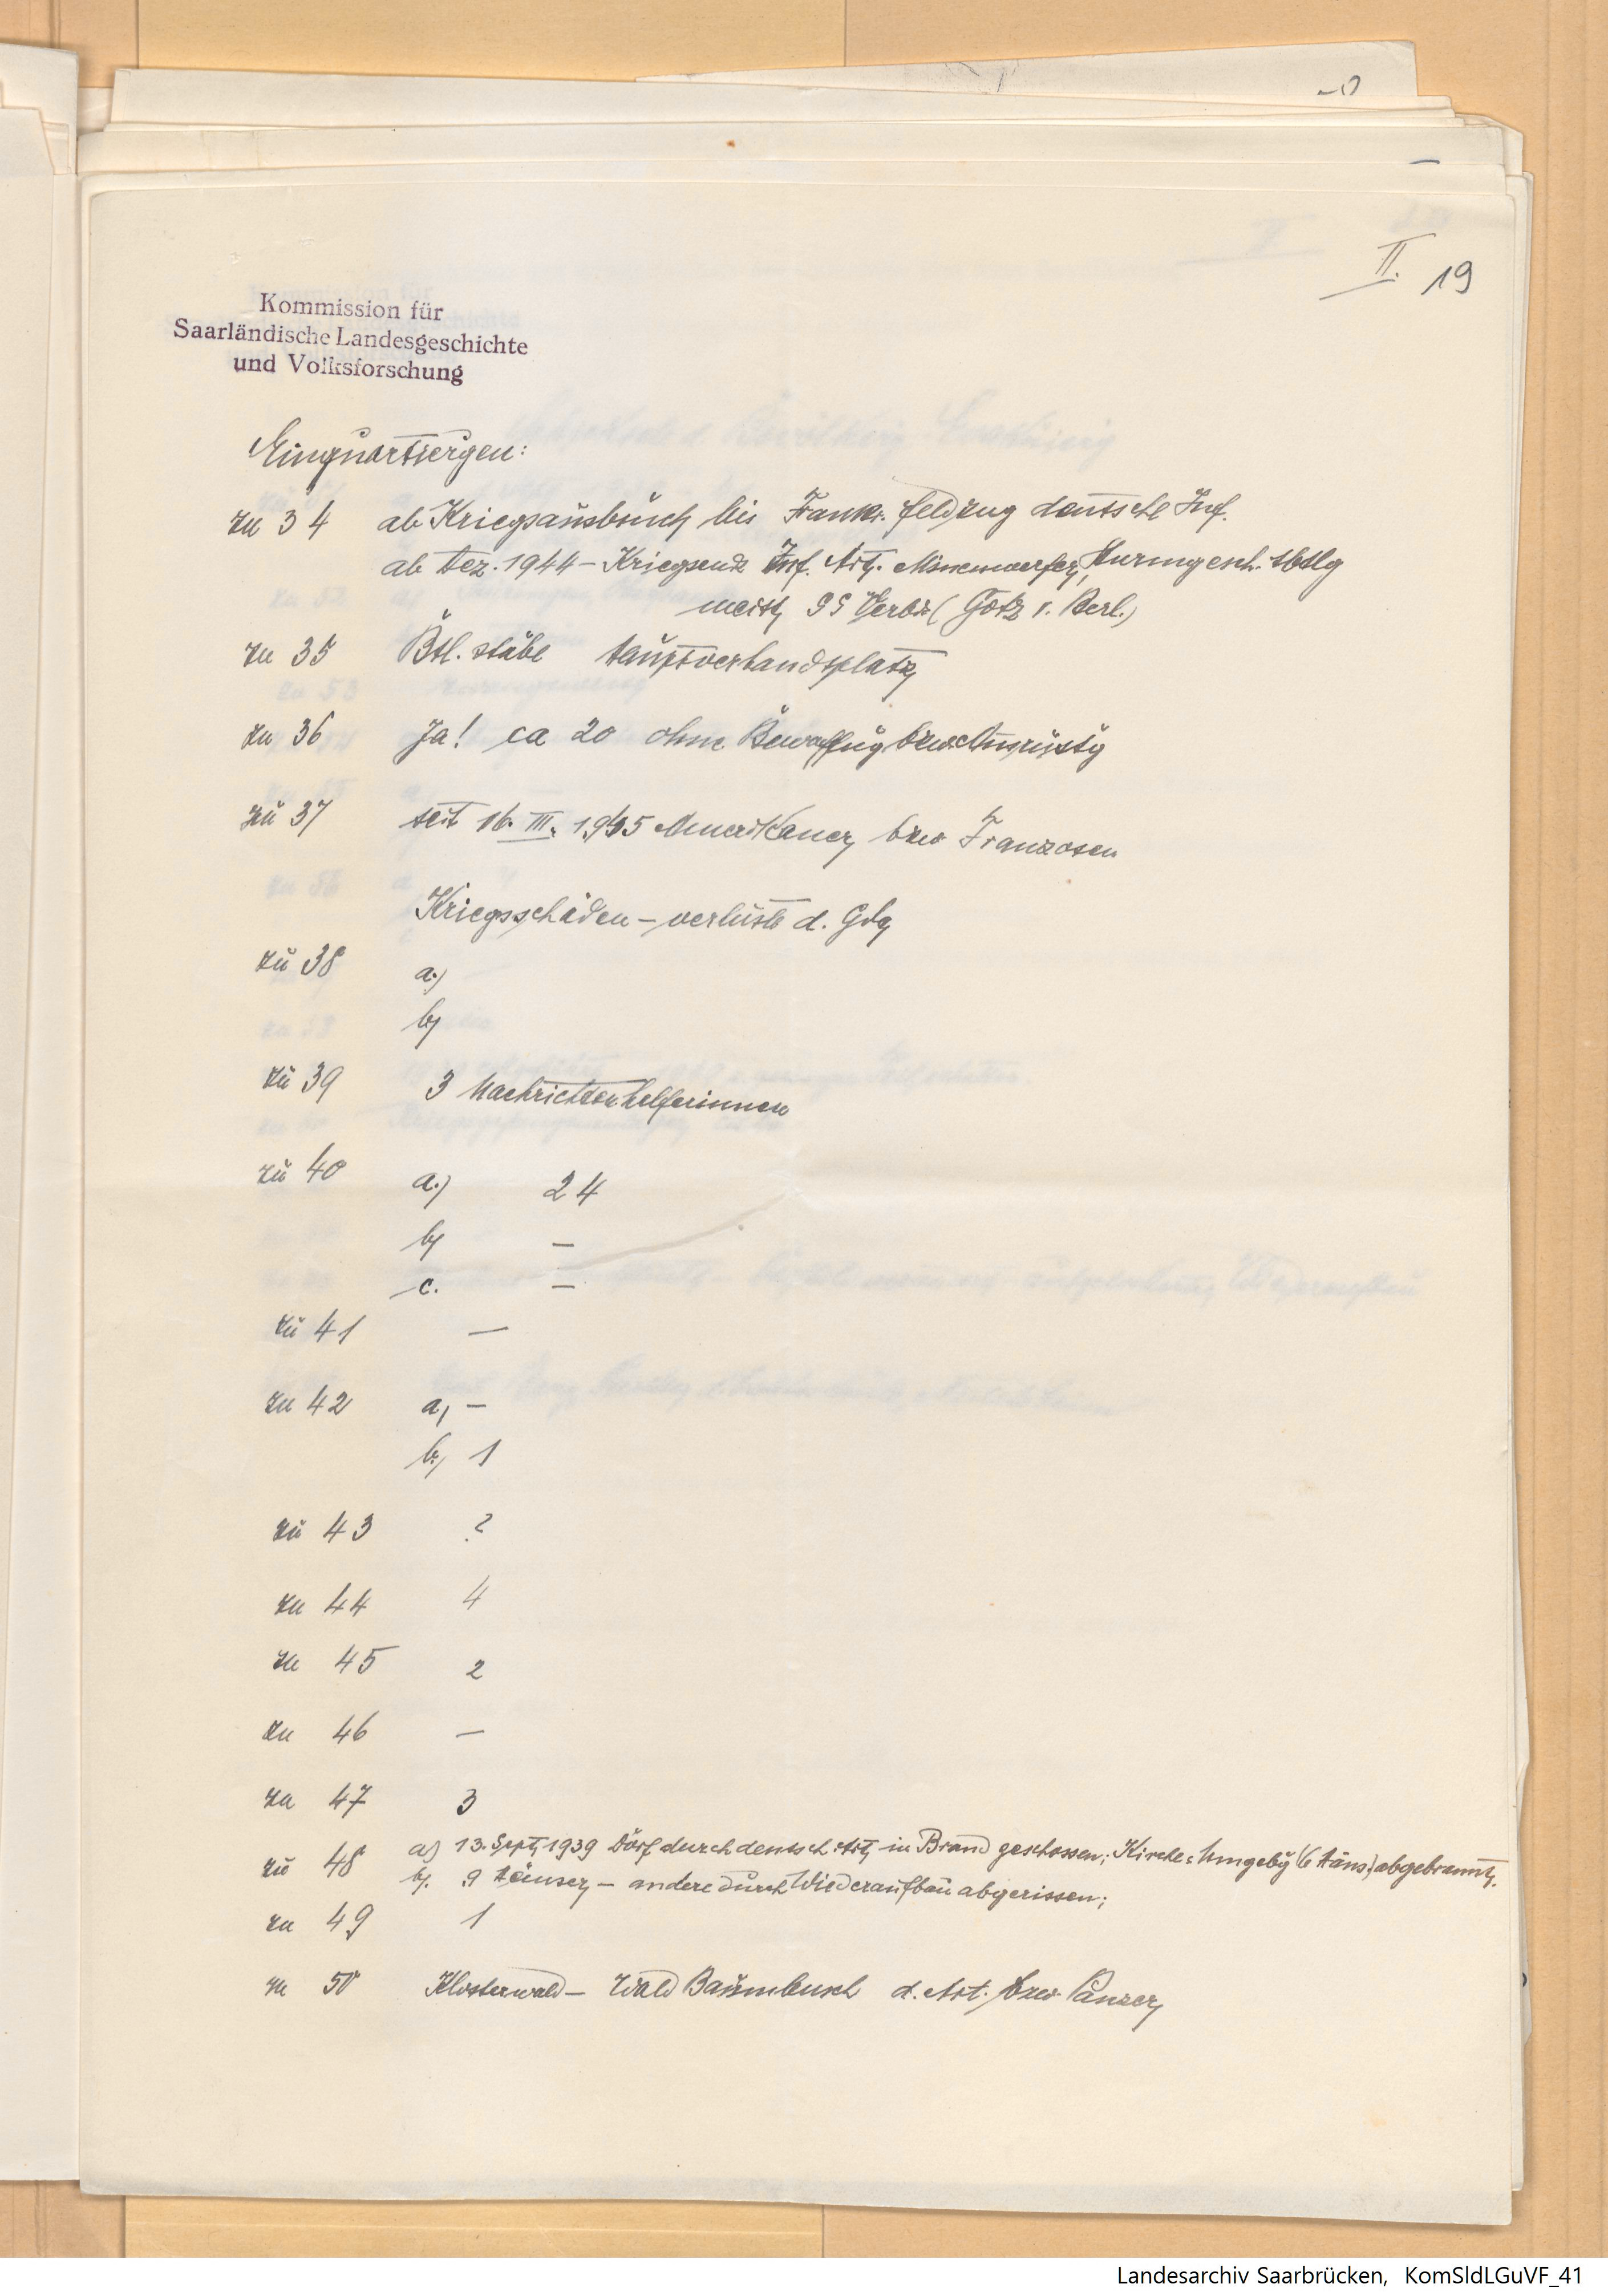 II. 19
Kommission für
Saarländische Landesgeschichte
und Volksforschung
Einquartiergen:
zu 34 ab Kriegsausbruch bis Frankr. feldzug deutsche Inf.
ab Dez. 1944 – Kriegsende Inf. Art. Minenwerfer, Sturmgesch. Abtlg
meist SS Verbd (Götz v. Berl.)
zu 35 Btl. stäbe Hauptverbandsplatz
zu 36 Ja! ca 20 ohne Bewaffng bzw. Ausrüstg
zu 37 seit 16. III. 1945 Amerikaner bzw Franzosen
Kriegsschäden – verluste d. Gde
zu 38 a.)
b)
zu 39 3 Nachrichtenhelferinnen
zu 40 a.) 24
b) –
c. –
zu 41 –
zu 42 a, –
b, 1
zu 43 ?
zu 44 4
zu 45 2
zu 46 –
zu 47 3
zu 48 a) 13. Sept. 1939 Dorf durch deutsch. Art. in Brand geschossen; Kirche u Umgebg (6 Häus.) abgebrannt.
b. 9 Häuser – andere durch Wiederaufbau abgerissen;
zu 49 1
zu 50 Klosterwald – Wald Baumbusch d. Art. bzw. Panzer
Landesarchiv Saarbrücken, KomSldLGuVF_41